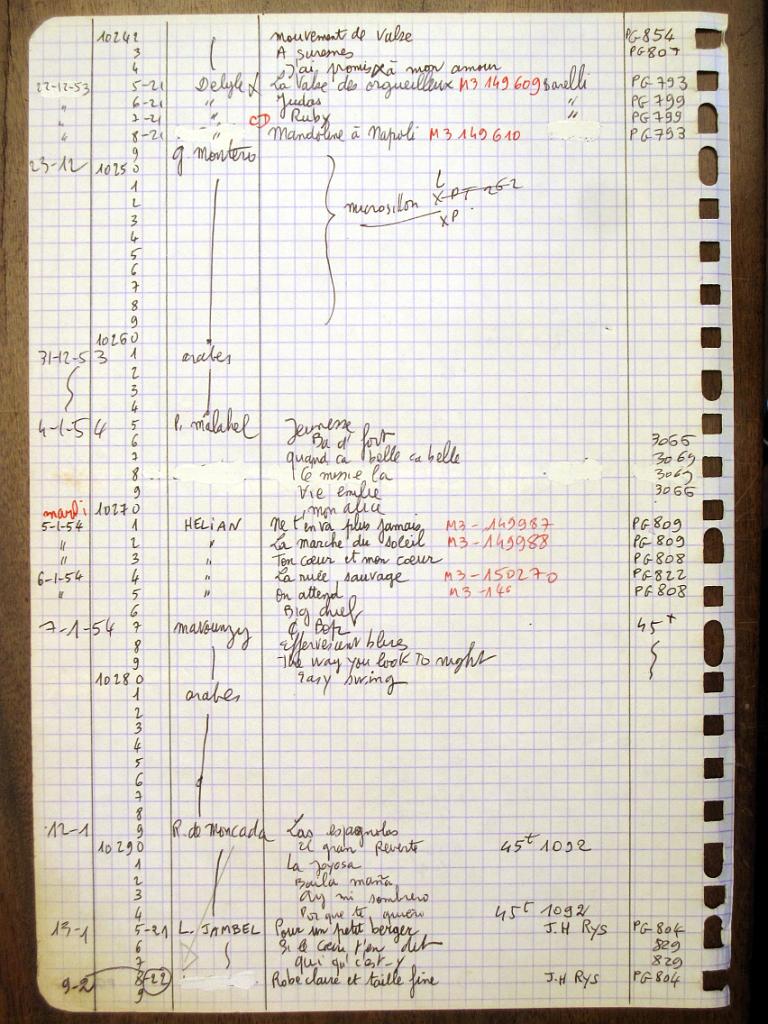 10242 Mouvement de Valse PG 854
3 A suresnes PG 807
4 J'ai promis à mon amour
22-12-53 5-21 Delyle X La Valse des orgueilleux M3 149609 Barelli PG 793
" 6-21 " Judas " PG 799
" 7-21 " CD Ruby " PG 799
" 8-21 Mandoline à Napoli M3 149610 PG 793
9 G. Montero
23-12 10250
1
2 microsillon L XPT 262
3 XP
4
5
6
7
8
9
10260
31-12-53 1 arabes
2
3
4
4-1-54 5 P. Malahel Jeunesse
6 Ba d' fort 3066
7 quand ca belle ca belle 3069
8 la 3069
9 Vie 3066
mardi 10270 mon
5-1-54 1 HELIAN Ne t'en va plus jamais M3-149987 PG 809
" 2 " La marche du soleil M3-149988 PG 809
" 3 " Ton cœur et mon cœur PG 808
6-1-54 4 " La nuée sauvage M3-150270 PG 822
" 5 " On attend M3-14 PG 808
6 Big chief
7-1-54 7 mavounzy 45 t
8 Effervescent blues
9 The way you look To night
10280 Easy swing
1 arabes
2
3
4
5
6
7
8
12-1 9 R. de Moncada Las espagnolas
10290 El gran Reverte 45t 1092
1 La Joyosa
2 Baila maña
3 Ay mi sombrero
4 Por que te quiero 45t 1092
13-1 5-21 L. JAMBEL Pour un petit berger J.H RYS PG 804
6 Si le cœur t'en dit 829
7 qui qu'c'est-y 829
9-2 8-22 Robe claire et taille fine J.H RYS PG 804
9